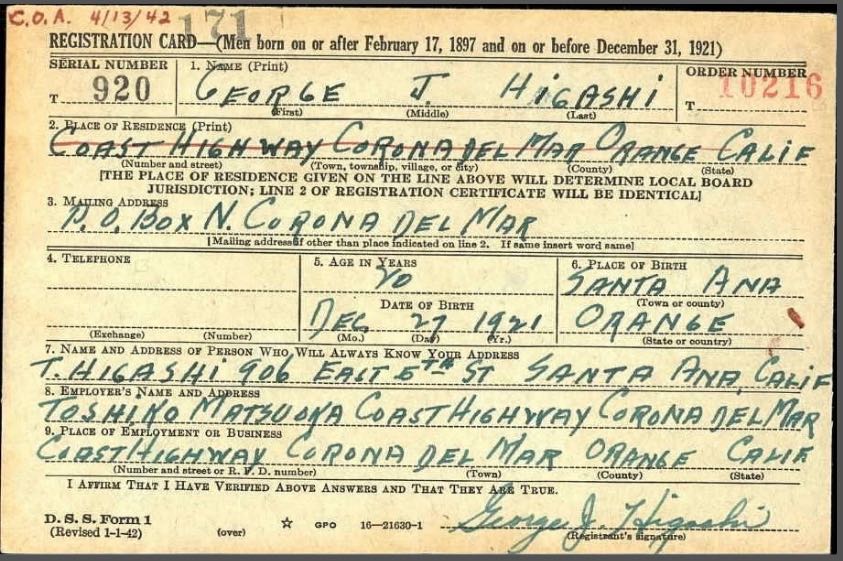 C.O.A. 4/13/42 171
REGISTRATION CARD—(Men born on or after February 17, 1897 and on or before December 31, 1921)
SERIAL NUMBER
T 920
1. NAME (Print)
GEORGE J. HIGASHI
(First) (Middle) (Last)
ORDER NUMBER
T 10216
2. PLACE OF RESIDENCE (Print)
COAST HIGHWAY CORONA DEL MAR ORANGE CALIF
(Number and street) (Town, township, village, or city) (County) (State)
[THE PLACE OF RESIDENCE GIVEN ON THE LINE ABOVE WILL DETERMINE LOCAL BOARD
JURISDICTION; LINE 2 OF REGISTRATION CERTIFICATE WILL BE IDENTICAL]
3. MAILING ADDRESS
P.O. BOX N. CORONA DEL MAR
[Mailing address if other than place indicated on line 2. If same insert word same]
4. TELEPHONE
(Exchange) (Number)
5. AGE IN YEARS
20
DATE OF BIRTH
DEC 27 1921
(Mo.) (Day) (Yr.)
6. PLACE OF BIRTH
SANTA ANA
(Town or county)
ORANGE
(State or country)
7. NAME AND ADDRESS OF PERSON WHO WILL ALWAYS KNOW YOUR ADDRESS
T. HIGASHI 906 EAST 5TH ST SANTA ANA, CALIF
8. EMPLOYER'S NAME AND ADDRESS
TOSHIKO MATSUOKA COAST HIGHWAY CORONA DEL MAR
9. PLACE OF EMPLOYMENT OR BUSINESS
COAST HIGHWAY CORONA DEL MAR ORANGE CALIF
(Number and street or R. F. D. number) (Town) (County) (State)
I AFFIRM THAT I HAVE VERIFIED ABOVE ANSWERS AND THAT THEY ARE TRUE.
D. S. S. Form 1
(Revised 1-1-42) (over) ☆ GPO 16—21630-1
George J. Higashi
(Registrant's signature)